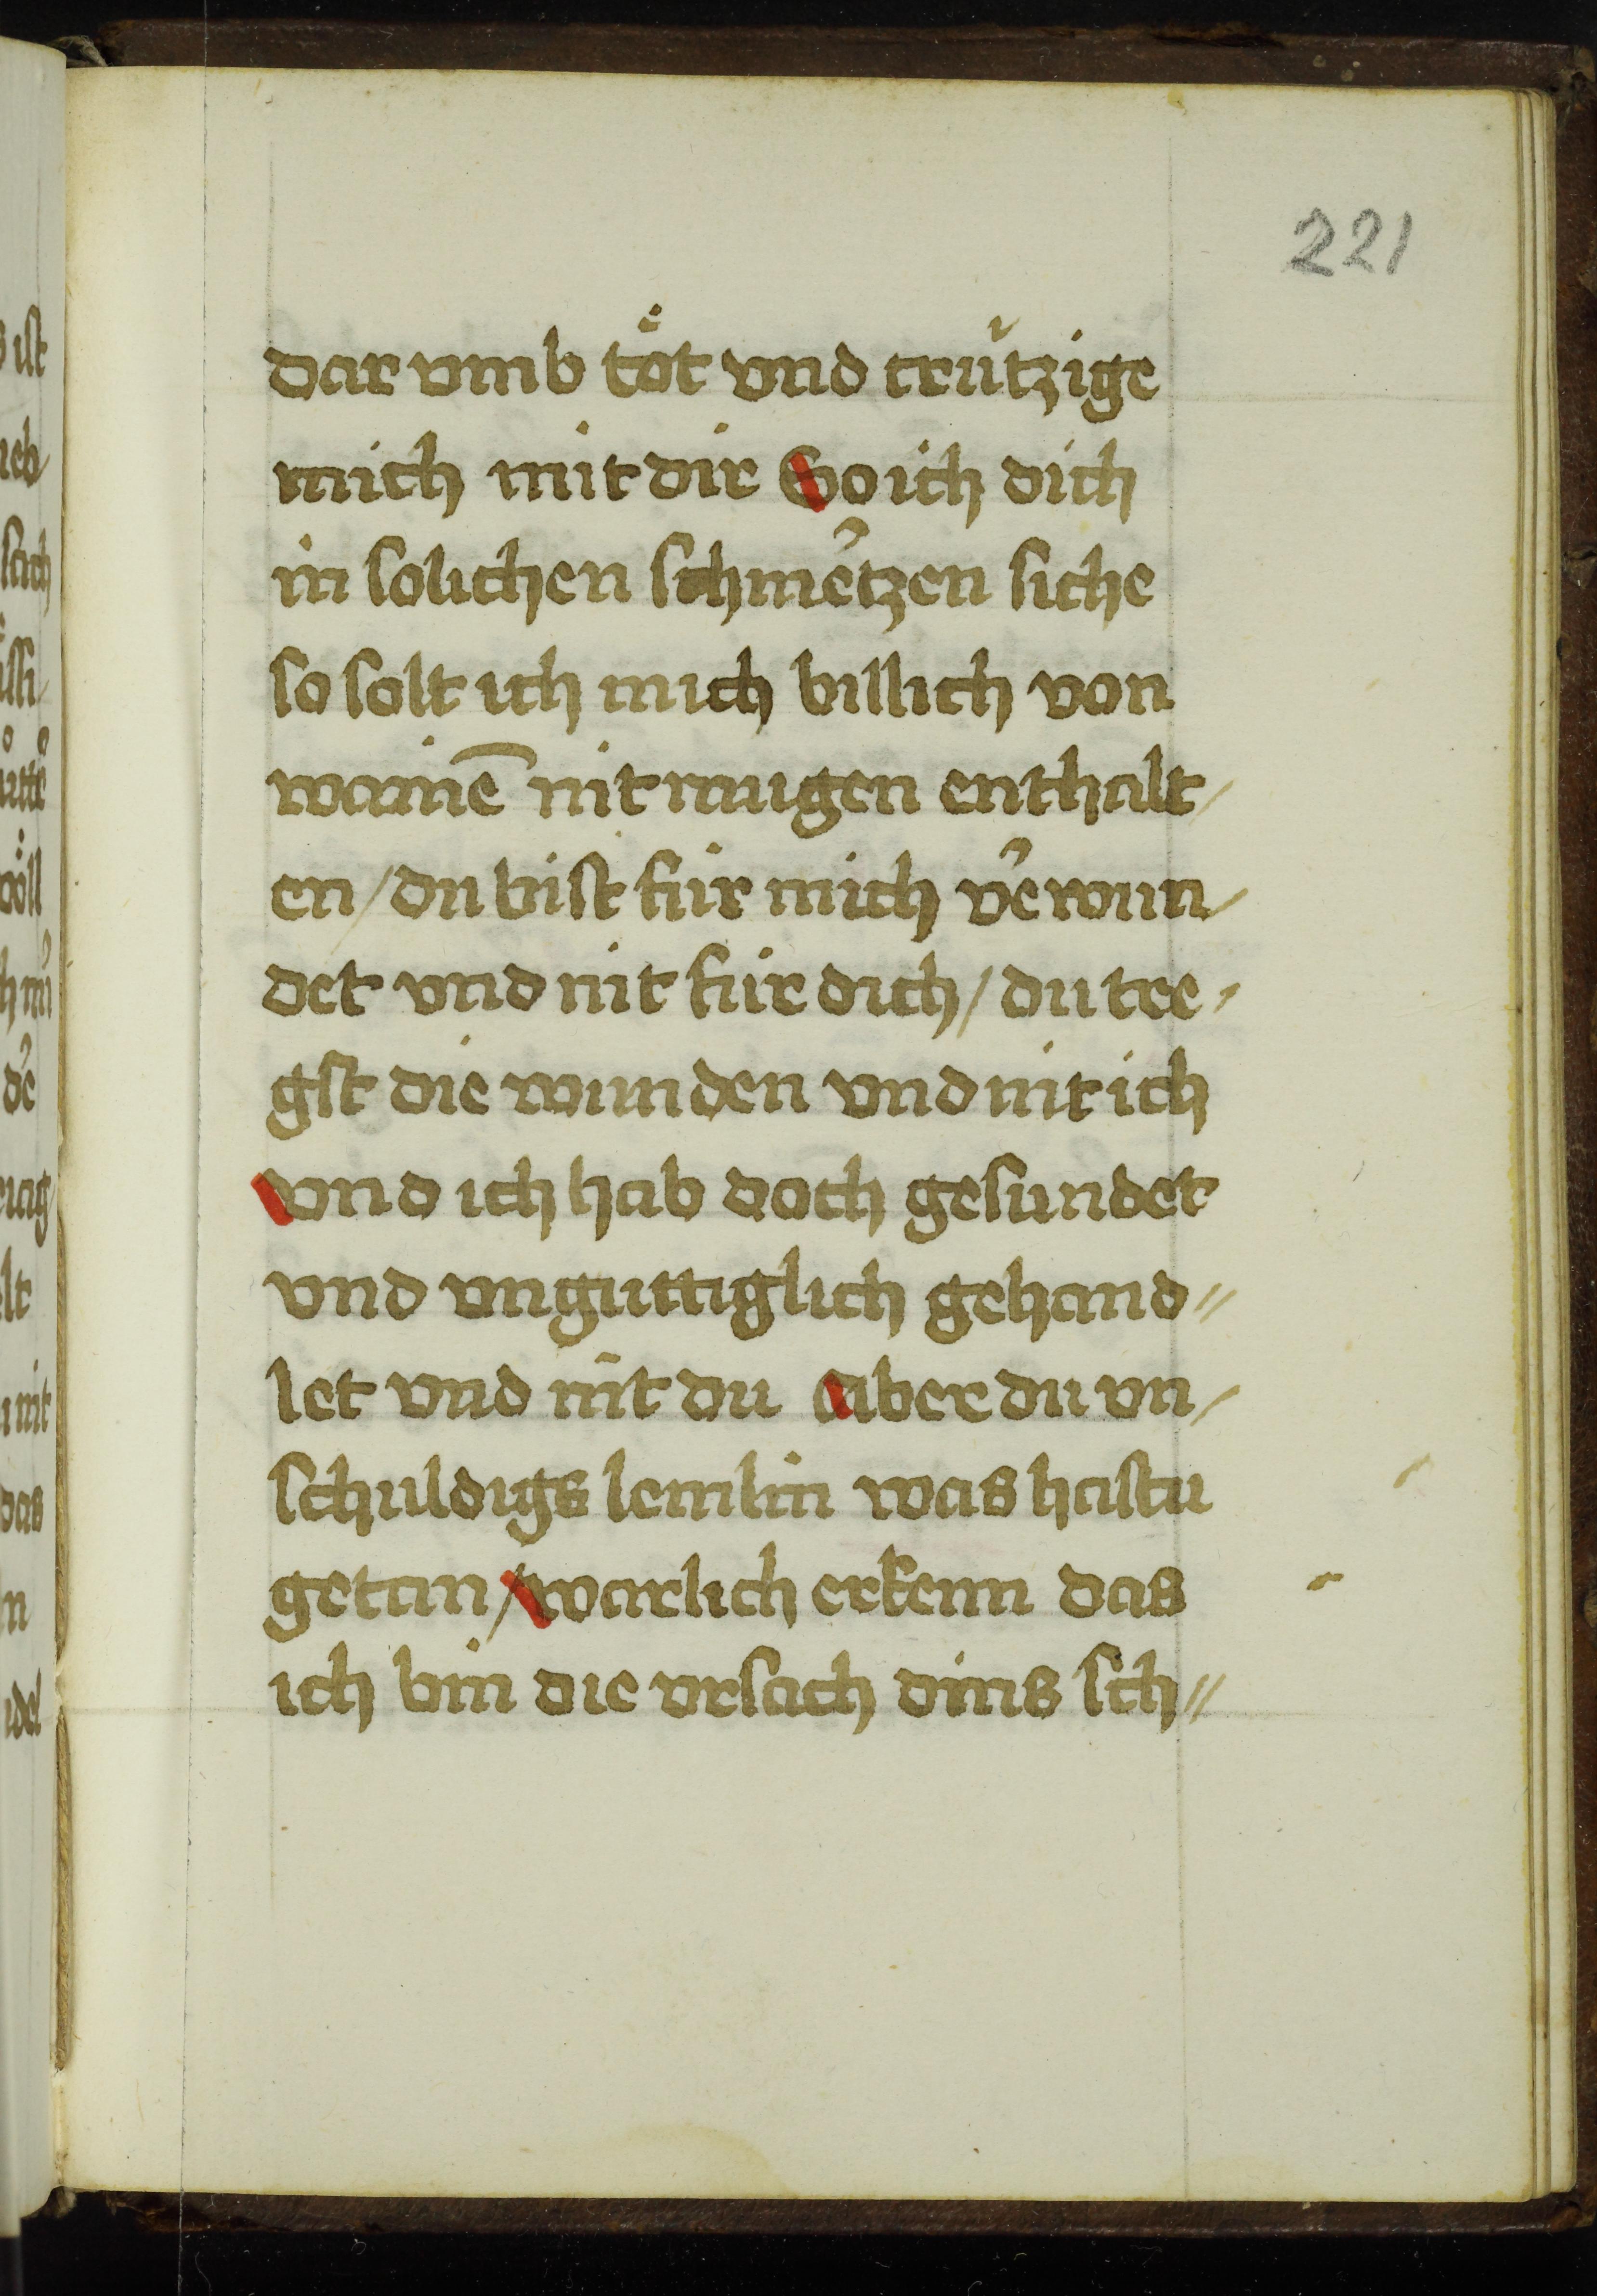 221
dar vmb töt vnd crützige
mich mit dir So ich dich
in solichen schme᷑tzen siche
so solt ich mich billich von
wainē nit mugen enthalt/
en / du bist für mich ve᷑wun/
det vnd nit für dich / du tre/
gst die wunden vnd nit ich
vnd ich hab doch gesundet
vnd vnguttiglich gehand//
let vnd nit du aber du vn/
schuldigs lemlin was hastu
getan / warlich erkenn das
ich bin die vrsach dins sch//